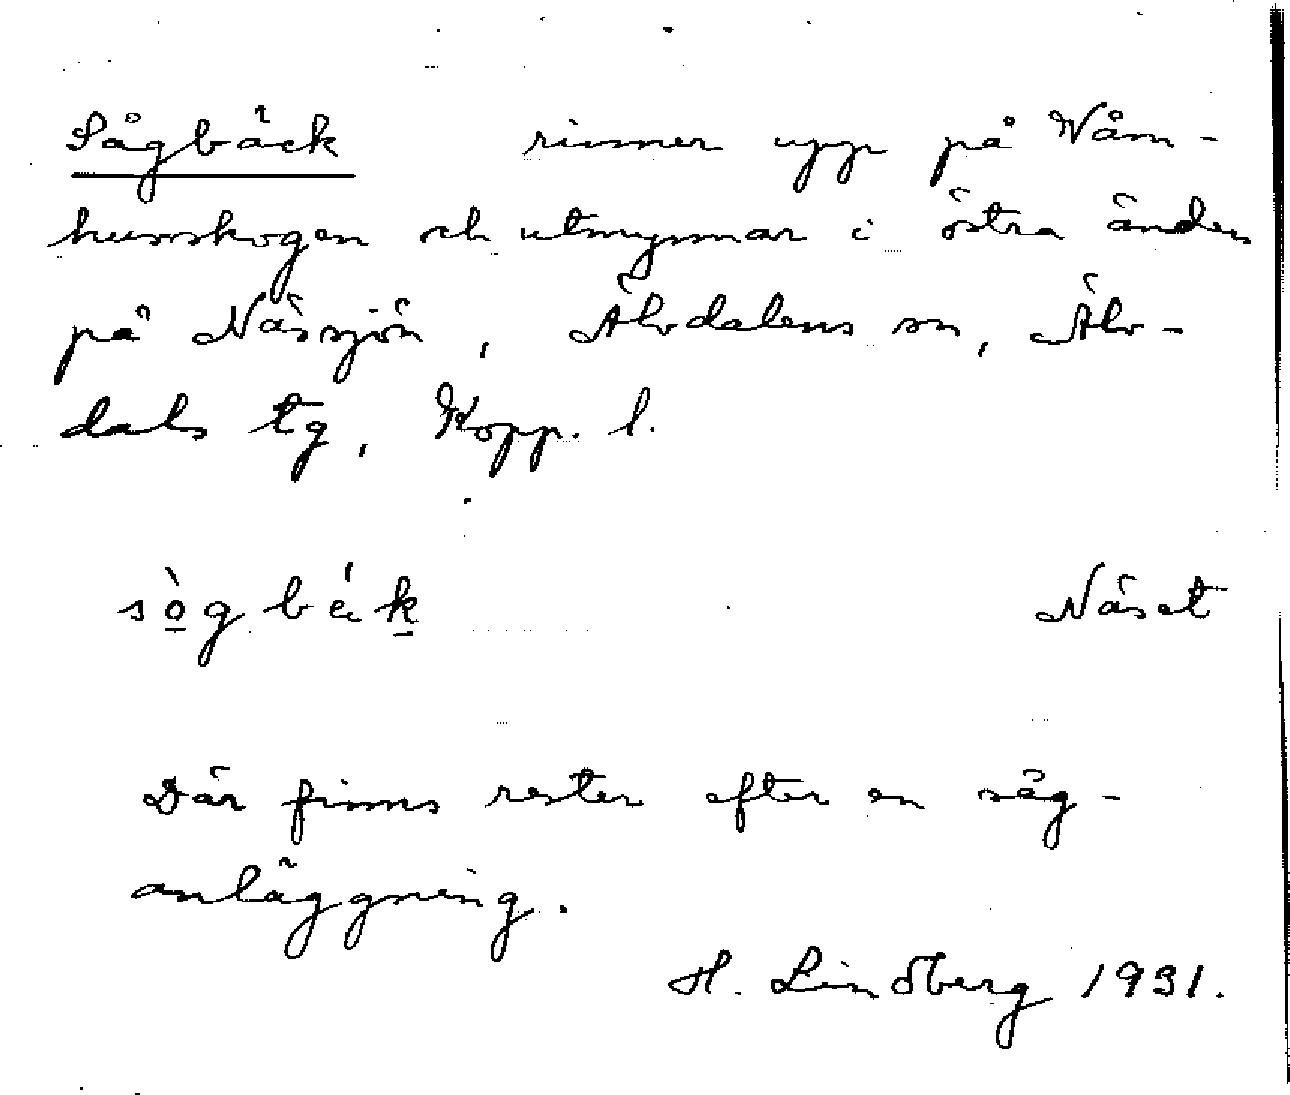 Sågbäck rinner upp på Våm-
husskogen och utmynnar i östra änden
på Nässjön, Älvdalens sn, Älv-
dals tg, Kopp. l.
sò̱gbéḵ Näset
Där finns rester efter en såg-
anläggning.
H. Lindberg 1931.